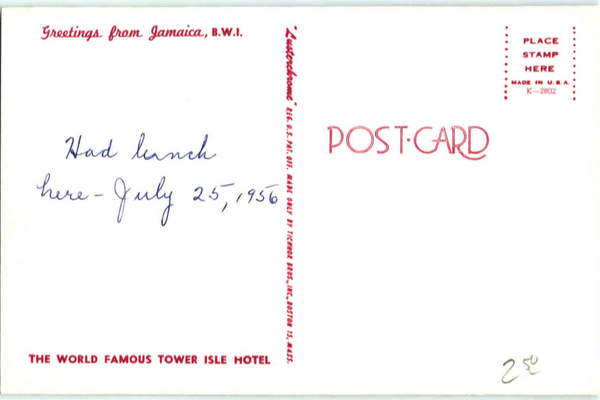 Greetings from Jamaica, B.W.I.
Had lunch
here - July 25, 1956
THE WORLD FAMOUS TOWER ISLE HOTEL
"Lusterchrome" REG. U.S. PAT. OFF. MADE ONLY BY TICHNOR BROS., INC., BOSTON 15, MASS.
POST-CARD
PLACE
STAMP
HERE
MADE IN U.S.A.
K-2802
2 50